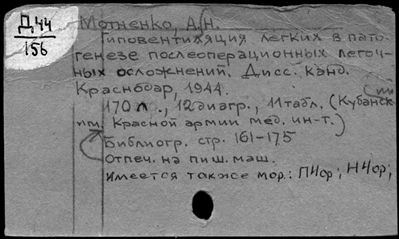 Д 44
156
Мотненко, А.Н.
Гиповентиляция легких в пато-
генезе послеоперационных легоч-
ных осложнений. Дисс. канд.
Краснодар, 1944.
170 л., 12 диагр., 11 табл. (Кубанск-
ий
им. Красной армии мед. ин-т.)
Библиогр. стр. 161-175
Отпеч. на пиш. маш.
Имеется также мор.: П4ор; Н4ор;